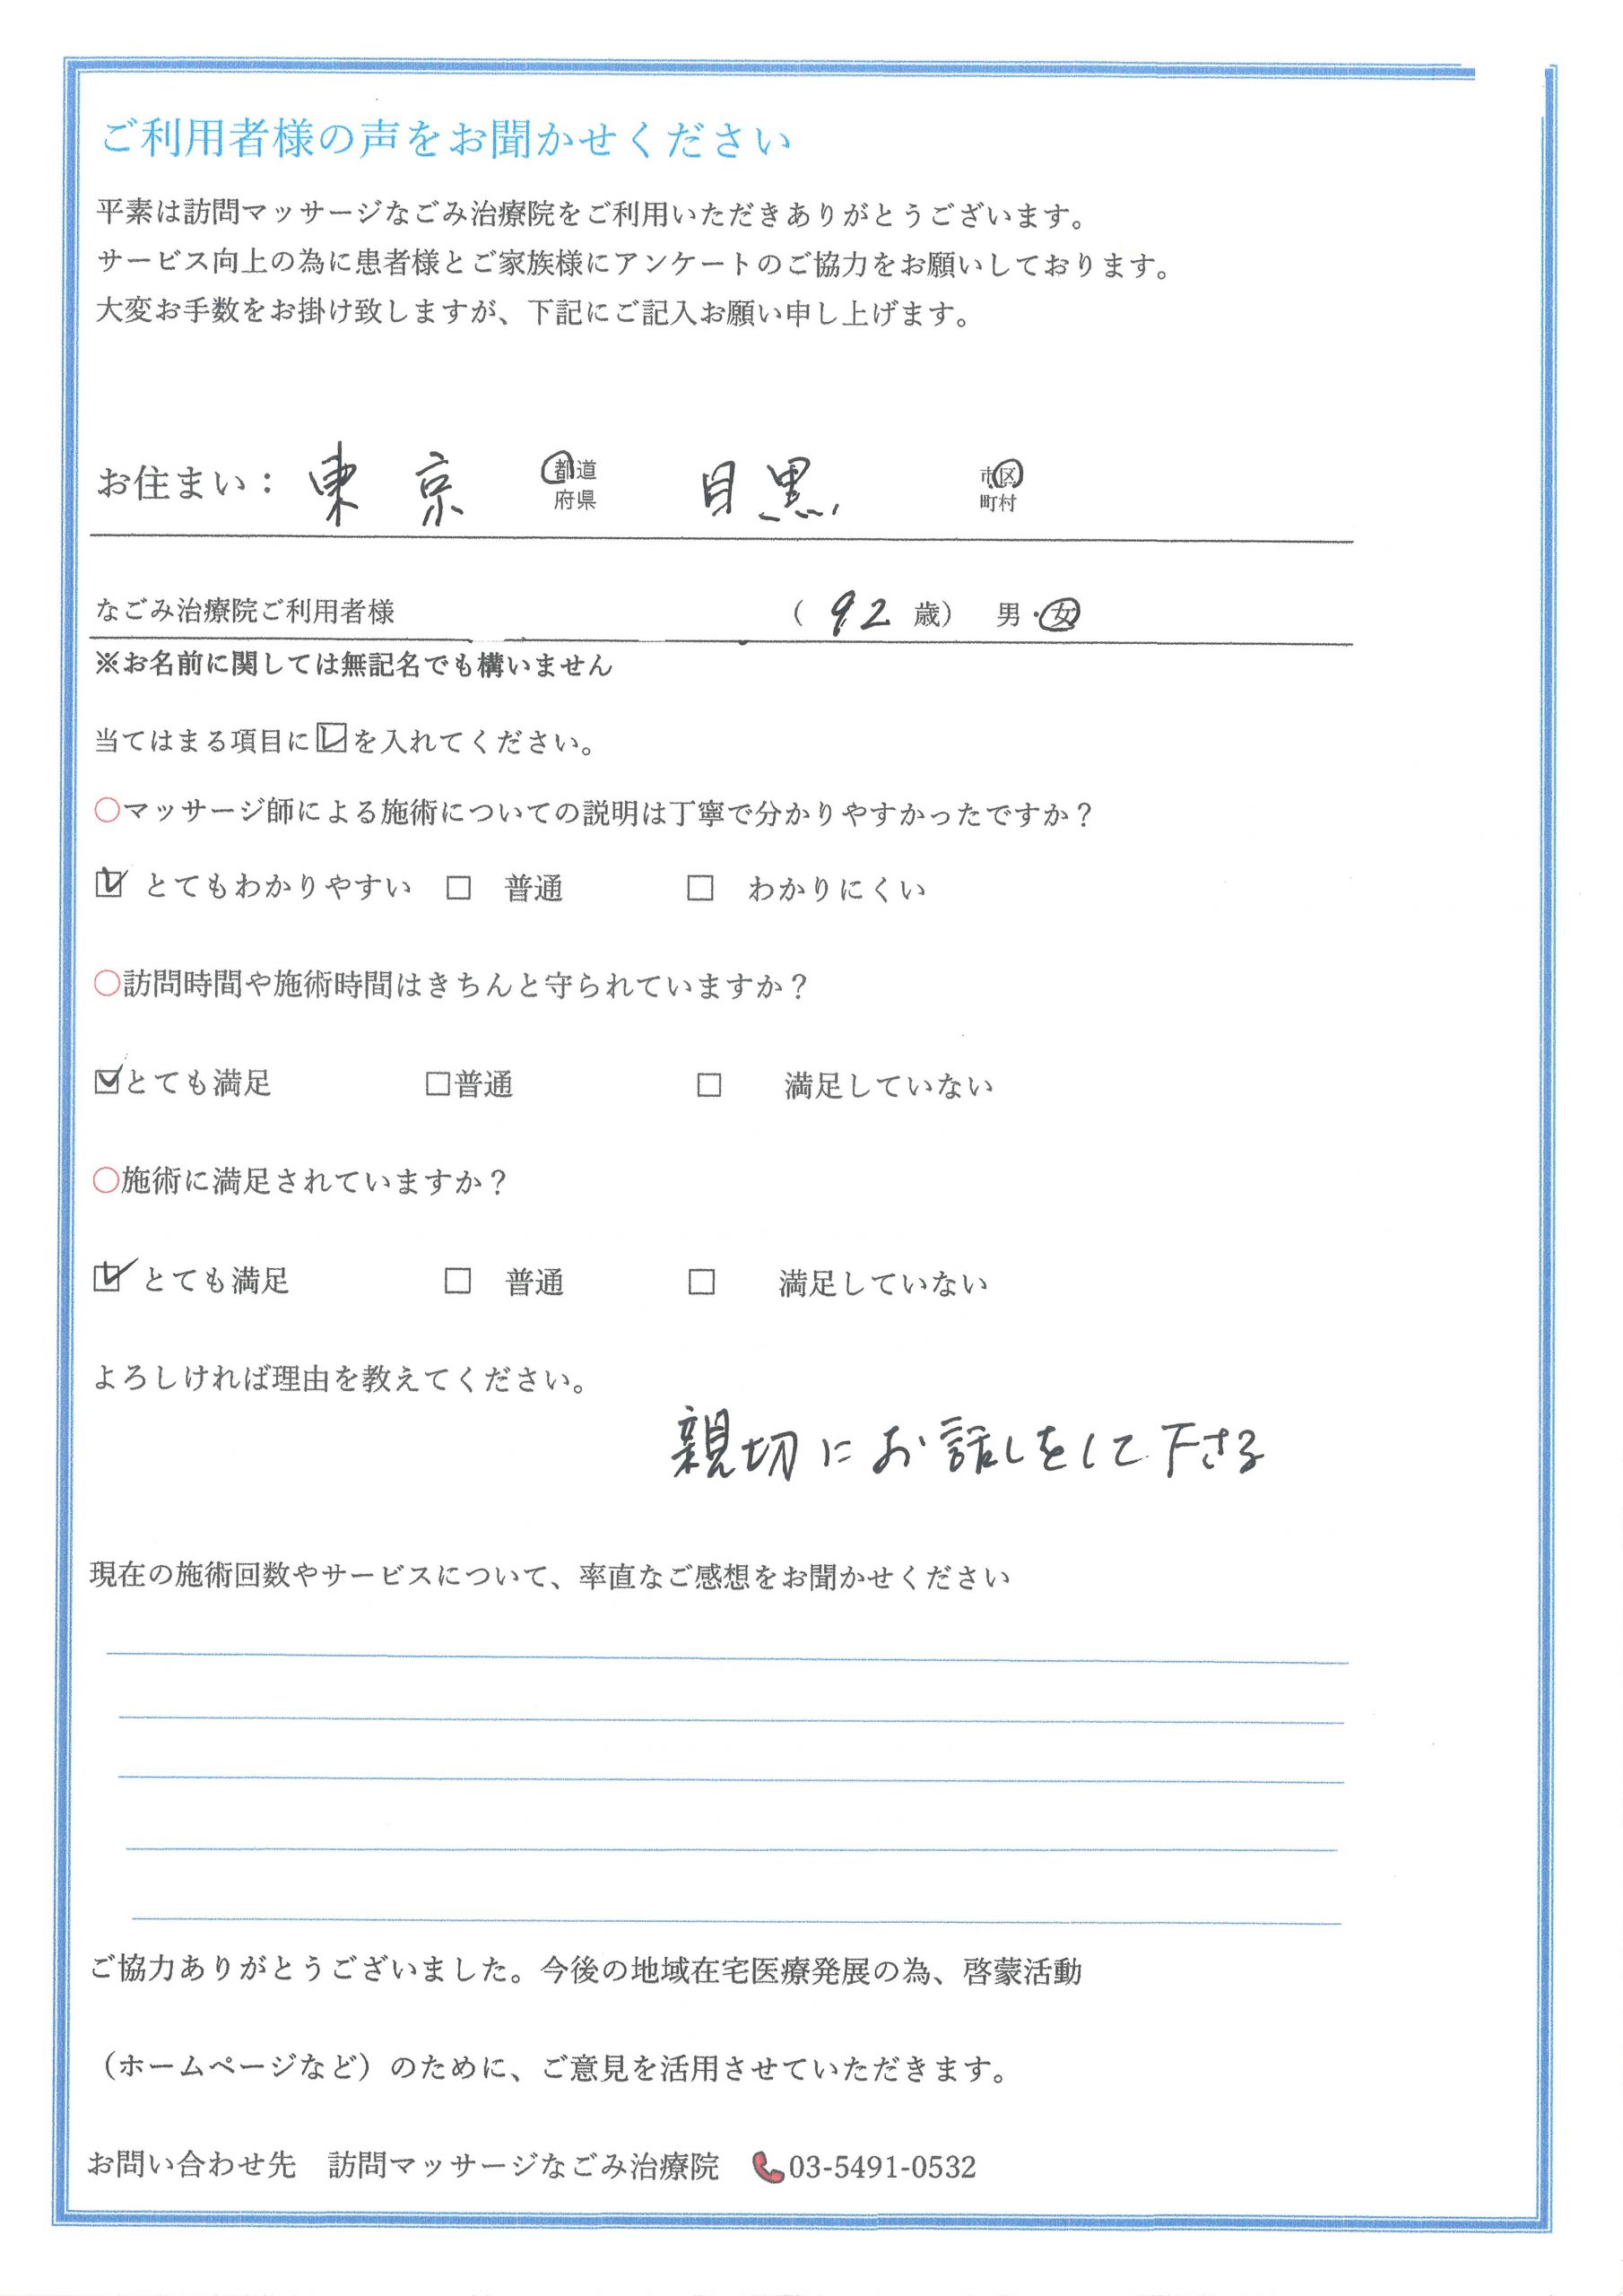 ご利用者様の声をお聞かせください
平素は訪問マッサージなごみ治療院をご利用いただきありがとうございます。
サービス向上の為に患者様とご家族様にアンケートのご協力をお願いしております。
大変お手数をお掛け致しますが、下記にご記入お願い申し上げます。
お住まい： 東京 都道府県 目黒 市区町村
なごみ治療院ご利用者様 （ 92 歳） 男・女
※お名前に関しては無記名でも構いません
当てはまる項目に☑を入れてください。
○マッサージ師による施術についての説明は丁寧で分かりやすかったですか？
☑ とてもわかりやすい □ 普通 □ わかりにくい
○訪問時間や施術時間はきちんと守られていますか？
☑とても満足 □普通 □ 満足していない
○施術に満足されていますか？
☑ とても満足 □ 普通 □ 満足していない
よろしければ理由を教えてください。
親切にお話しをして下さる
現在の施術回数やサービスについて、率直なご感想をお聞かせください
ご協力ありがとうございました。今後の地域在宅医療発展の為、啓蒙活動
（ホームページなど）のために、ご意見を活用させていただきます。
お問い合わせ先 訪問マッサージなごみ治療院 📞03-5491-0532